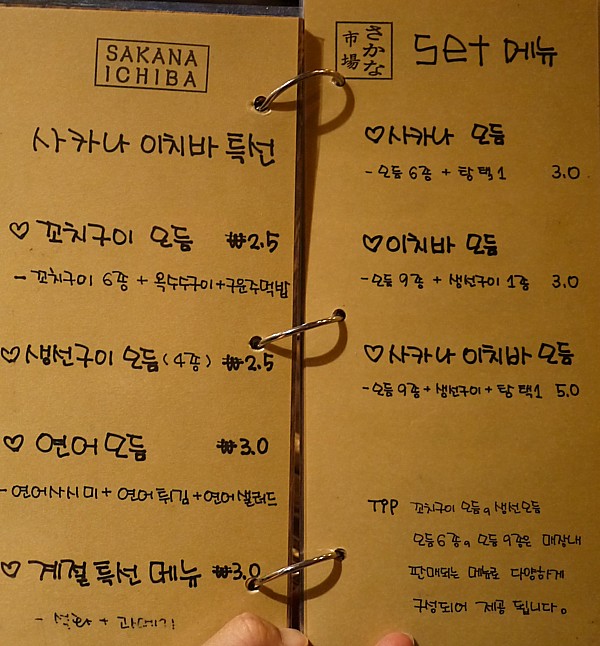 SAKANA
ICHIBA
사카나 이치바 특선
♡ 꼬치구이 모듬 ₩2.5
- 꼬치구이 6종 + 옥수수구이+구운주먹밥
♡ 생선구이 모듬 (4종) ₩2.5
♡ 연어모듬 ₩3.0
- 연어사시미 + 연어튀김 + 연어샐러드
♡ 계절 특선 메뉴 ₩3.0
- 석화 + 과메기
さかな
市場
set 메뉴
♡사카나 모듬
- 모듬 6종 + 탕 택1 3.0
♡이치바 모듬
- 모듬 9종 + 생선구이 1종 3.0
♡사카나 이치바 모듬
- 모듬 9종 + 생선구이 + 탕 택1 5.0
TPP 꼬치구이 모듬, 생선모듬
모듬6종, 모듬 9종은 매장내
판매되는 메뉴로 다양하게
구성되어 제공 됩니다。